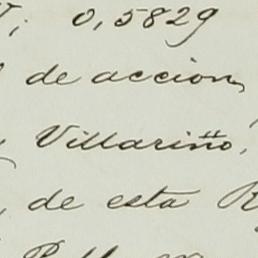 0,5829
de accion,
Villariño,
de esta